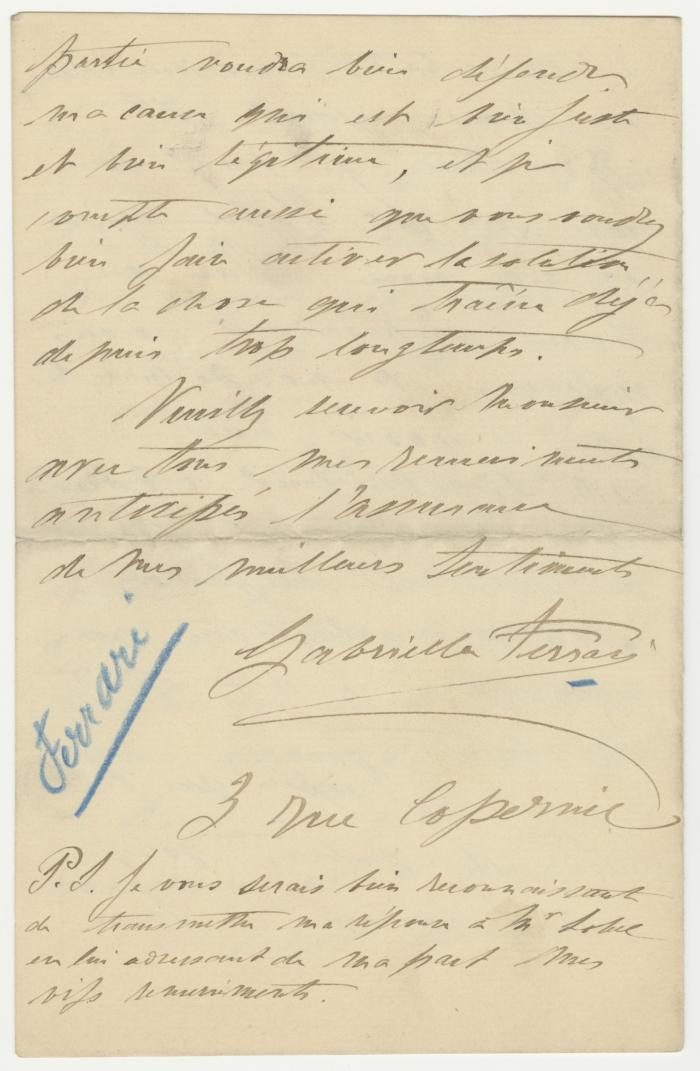 partie voudra bien défendre
ma cause qui est bien juste
et bien légitime, et je
compte aussi que vous voudrez
bien faire activer la solution
de la chose qui traîne déjà
depuis trop longtemps.
Veuillez recevoir Monsieur
avec tous mes remerciments
anticipés l'assurance
de mes meilleurs sentiments
Gabriella Ferrari
Ferrari
3 rue Copernic
P.S. Je vous serais bien reconnaissante
de transmettre ma réponse à Mr
en lui adressant de ma part mes
vifs remerciments.